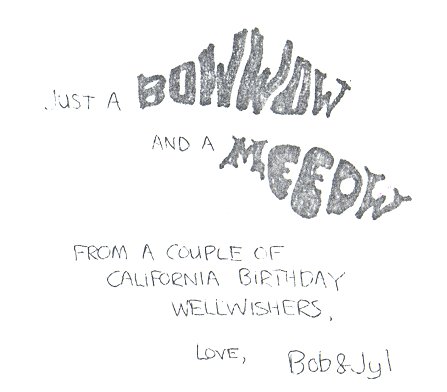 JUST A BOWWOW
AND A MEEOW
FROM A COUPLE OF
CALIFORNIA BIRTHDAY
WELLWISHERS,
LOVE, Bob & Jyl